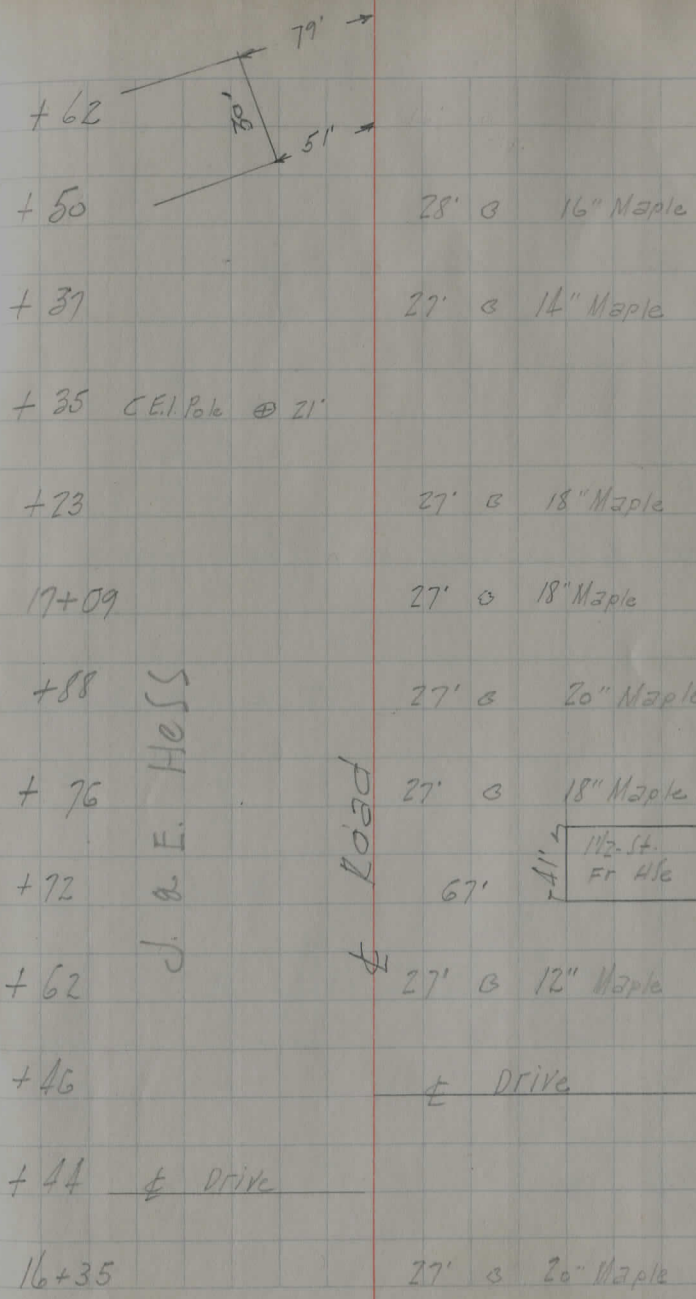 79'
+62
30'
51'
+50 28' 16" Maple
+37 27' 14" Maple
+35 C.E.I. Pole ⊕ 21'
+23 27' 18" Maple
17+09 27' 18" Maple
+88 27' 20" Maple
J. & E. Hess
℄ Road
+76 27' 18" Maple
+72 67' 41' 1 1/2-St.
Fr Hse
+62 27' 12" Maple
+46 ℄ Drive
+44 ℄ Drive
16+35 27' 20" Maple